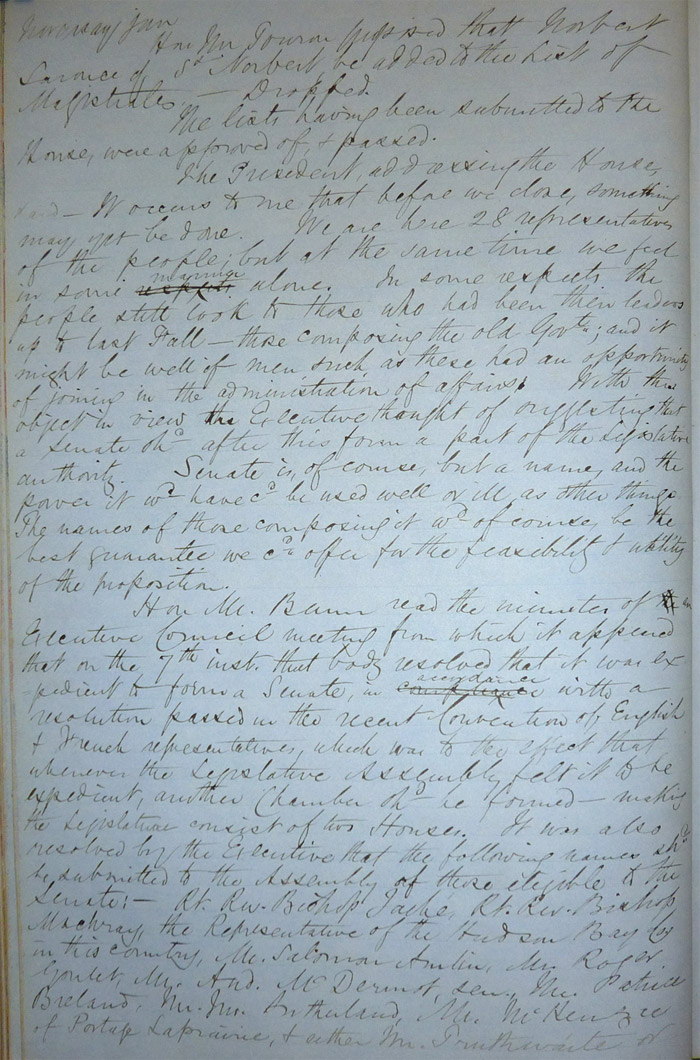 Hon Mr. Touron proposed that Norbert
Laronce of St Norbert be added to the List of
Magistrates — Dropped.
The lists having been submitted to the
House, were approved of, & passed.
The President, addressing the House,
said — It occurs to me that before we close, something
may yet be done. We are here 28 representatives
of the people; but at the same time we feel
in some manner alone. In some respects the
people still look to those who had been their leaders
up to last Fall — those composing the old Govtn; and it
might be well if men such as these had an opportunity
of joining in the administration of affairs. With this
object in view the Executive thought of suggesting that
a Senate shd after this form a part of the Legislative
authority. Senate is, of course, but a name, and the
power it wd have cd be used well or ill, as other things.
The names of those composing it wd of course, be the
best guarantee we cd offer for the feasibility & utility
of the proposition.
Hon Mr. Bunn read the minutes of an
Executive Council meeting from which it appeared
that on the 7th inst. that body resolved that it was ex-
-pedient to form a Senate, in accordance with a
resolution passed in the recent Convention of English
& French representatives, which was to the effect that
whenever the Legislative Assembly felt it to be
expedient, another Chamber shd be formed — making
the Legislature consist of two Houses. It was also
resolved by the Executive that the following names shd
be submitted to the Assembly of those eligible to the
Senate: — Rt. Rev. Bishop Tache, Rt. Rev. Bishop
Machray, the Representative of the Hudson Bay Co
in this country, Mr. Salomon Amlin, Mr. Roger
Goulet, Mr. And. McDermot, sen., Mr. Patrice
Breland, Mr. Jno. Sutherland, Mr. McKenzie
of Portage Laprairie, & either Mr. Truthwaite or